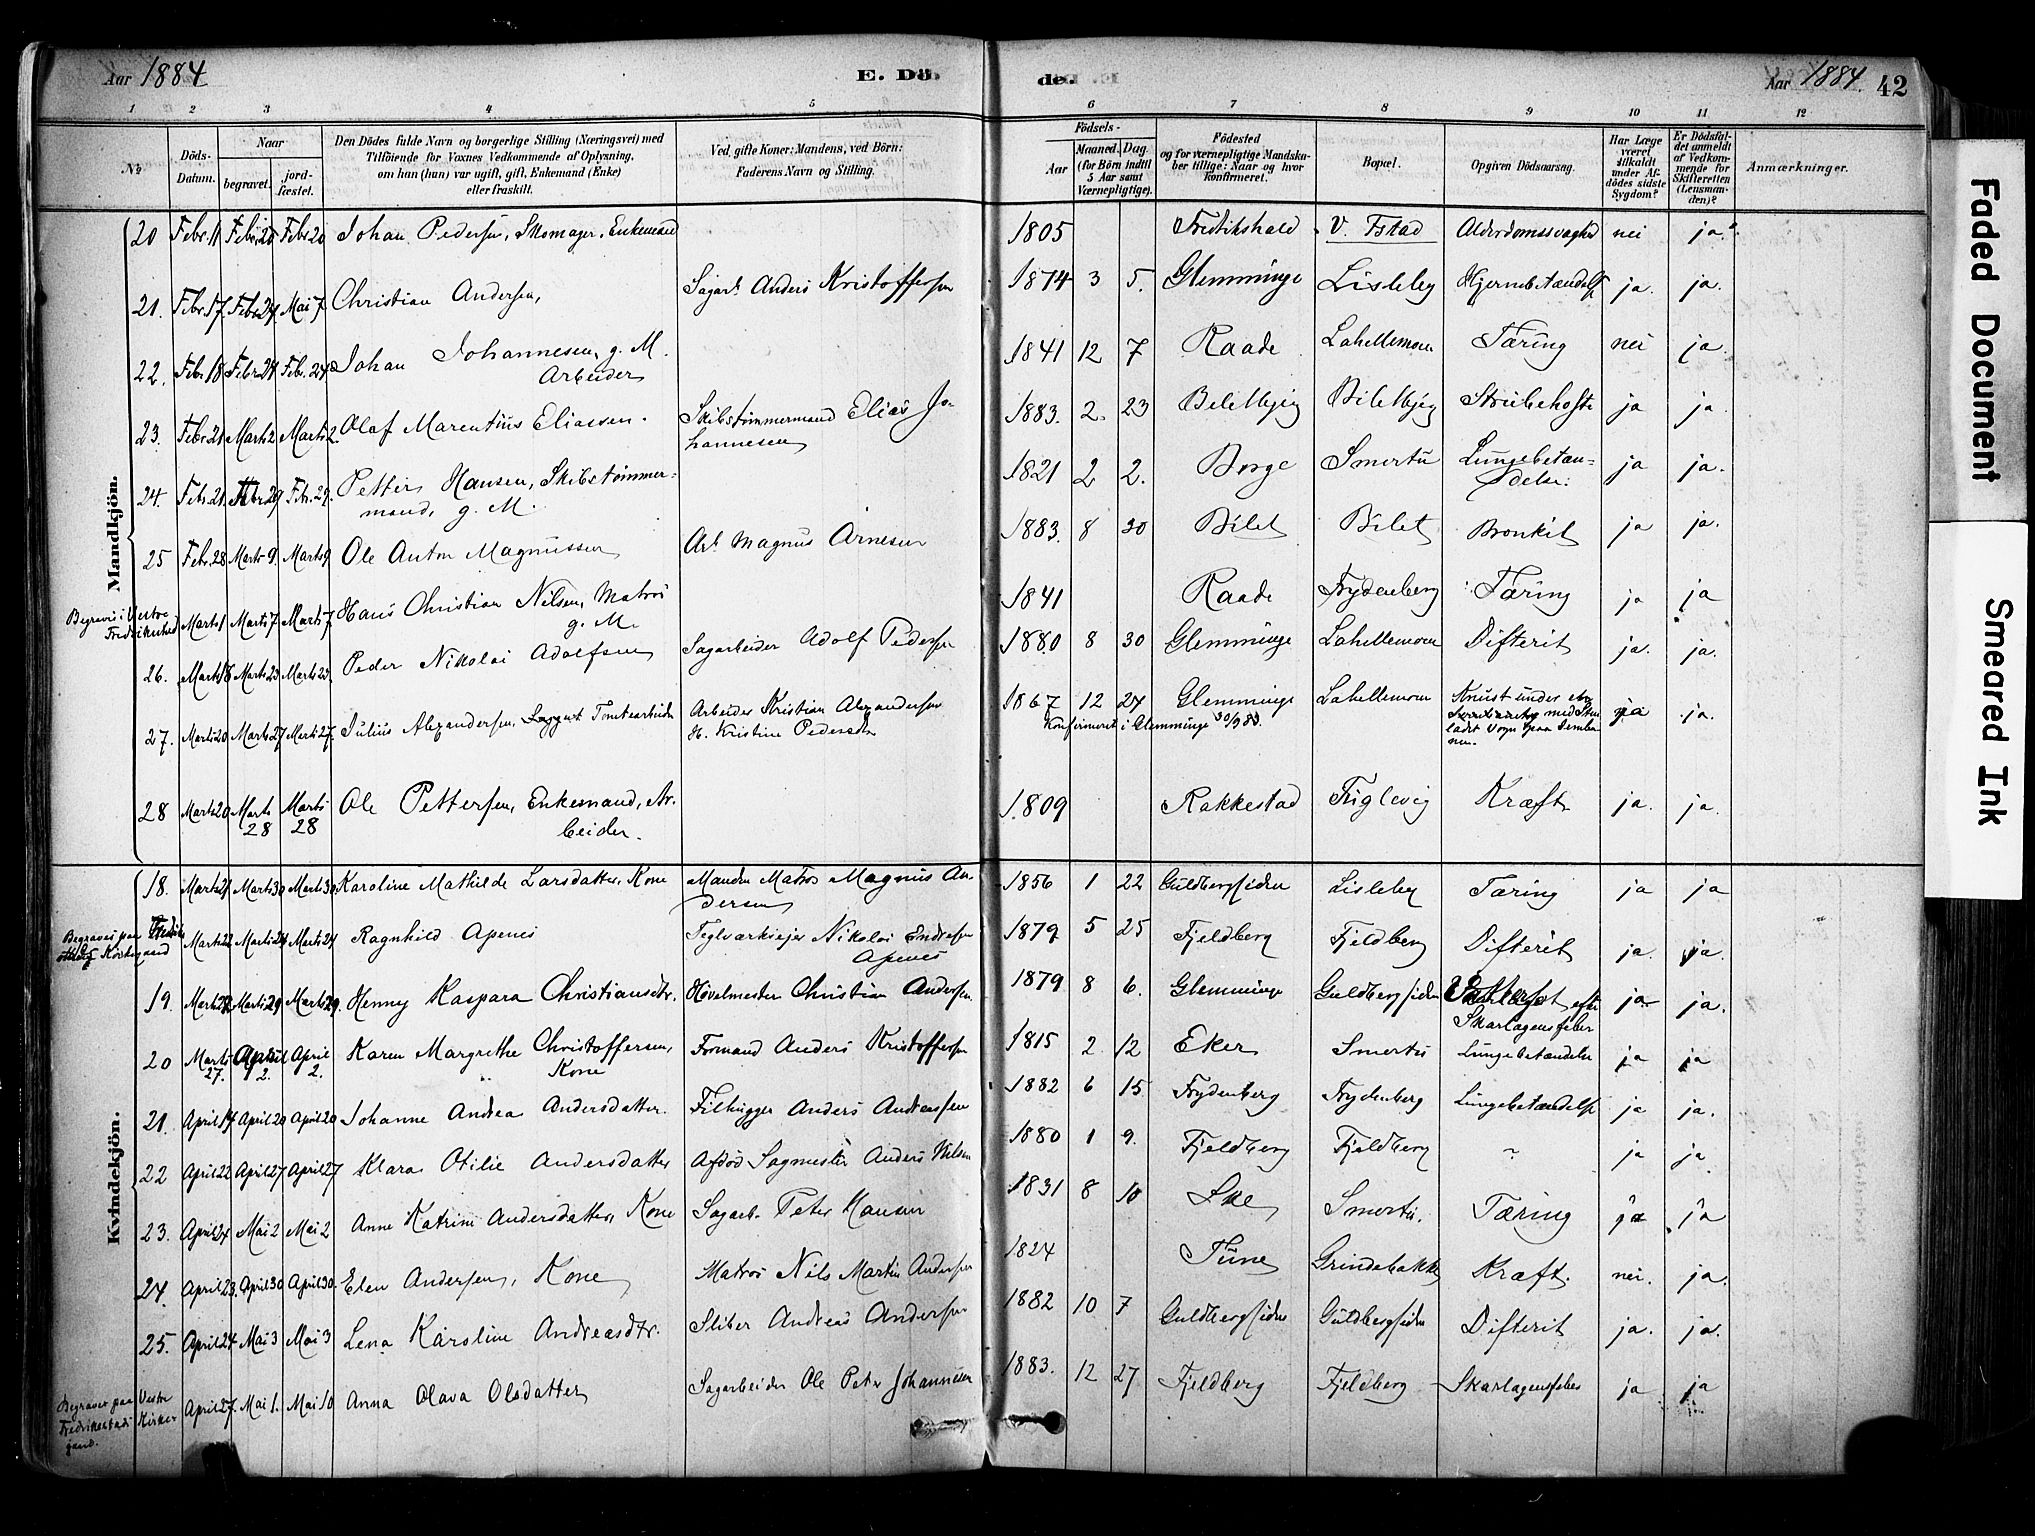 Aar 1884 E. Dö- de. Aar 1884. 42
1 2 3 4 5 6 7 8 9 10 11 12
No Döds-Datum. Naar begravet. jord-fæstet. Den Dödes fulde Navn og borgerlige Stilling (Næringsvei) med Tilföiende for Voxnes Vedkommende af Oplysning, om han (hun) var ugift, gift, Enkemand (Enke) eller fraskilt. Ved gifte Koner: Mandens, ved Börn: Faderens Navn og Stilling. Födsels- Aar Maaned. Dag. (for Börn indtil 5 Aar samt Værnepligtige). Födested og for værnepligtige Mandska-ber tillige: Naar og hvor konfirmeret. Bopæl. Opgiven Dödsaarsag. Har Læge været tilkaldt under Af-dödes sidste Sygdom? Er Dödsfal-det anmeldt af Vedkom-mende for Skifteretten (Lensman-den)? Anmærkninger.
Mandkjön.
20 Febr. 11 Febr. 20 Febr. 20 Johan Pedersen, Skomager, Enkemand 1805 Fredrikshald V. Fstad Alderdomssvaghed nei ja.
21. Febr. 17. Febr. 24 Mai 7. Christian Andersen, Sagarb. Anders Kristoffersen 1874 3 5. Glemminge Lisleby Hjernebetændelse ja. ja.
22. Febr. 18 Febr. 24 Febr. 24 Johan Johannesen, g. M. Arbeider 1841 12 7 Raade Lahellemoen Tæring nei ja.
23. Febr. 21 Marts 2 Marts 2. Olaf Marentius Eliassen. Skibstømmermand Elias Jo-hannesen 1883. 2. 23 Biletbyig Biletbyig Strubehoste ja ja.
24. Febr. 21 Febr. 29 Febr. 29. Petter Hansen, Skibstømmer-mand, g. M. 1821 2 2. Borge Smertu Lungebetæn-delse. ja ja.
25 Febr. 28 Marts 9. Marts 9 Ole Anton Magnussen Arb. Magnus Arnesen 1883. 8 20 Bilet Bilet Bronkit ja ja.
Begravet i Vestre Fredrikstad Marts 1 Marts 7 Marts 7 Hans Christian Nilsen, Matros g. M. 1841 Raade Frydenberg Tæring ja ja
26. Marts 18 Marts 23 Marts 23. Peder Nikolai Adolfsen Sagarbeider Adolf Pedersen 1880 8 30 Glemminge Lahellemoen Difterit ja. ja.
27. Marts 20 Marts 27 Marts 27. Julius Alexandersen, Tomtearbeider Arbeider Kristian Alexandersen H. Kristine Pedersdtr 1867 12 24 Glemminge Konfirmeret i Glemminge 30/9 83. Lahellemoen Knust under med Sten ladet Vogn paa Jernba-nen. ja ja.
28 Marts 20 Marts 28 Marts 28 Ole Pettersen, Enkemand, Ar-beider. 1809 Rakkestad Fuglevig Kræft ja. ja.
Kvindekjön.
18. Marts 21 Marts 30 Marts 30. Karoline Mathilde Larsdatter, Kone Manden Matros Magnus An-dersen 1856 1 22 Guldbergsiden Lisleby Tæring ja ja
Begravet paa Fredriks Kirkegaard Marts 22 Marts 24 Marts 24 Ragnhild Apenes Teglværkseier Nikolai Endresen Apenes 1879 5 25 Fjeldberg Fjeldberg Difterit ja. ja.
19. Marts 22 Marts 29 Marts 29. Henny Kaspara Christiansdtr. Høvelmester Christian Andersen. 1879 8 6. Glemminge Guldbergsiden efter Skarlagensfeber ja. ja.
20 Marts 27. April 2. April 2. Karen Margrethe Christoffersen, Kone Formand Anders Kristoffersen 1815 2 12 Eker Smertu Lungebetændelse ja ja
21. April 14 April 20 April 20 Johanne Andrea Andersdatter. Filhugger Anders Andreassen 1882 6 15 Frydenberg Frydenberg Lungebetændelse ja ja.
22 April 22 April 27 April 27 Klara Otilie Andersdatter Afdød Sagmester Anders Nilsen 1880 1 9. Fjeldberg Fjeldberg " ja ja.
23. April 24 Mai 2 Mai 2 Anne Katrine Andersdatter, Kone Sagarb. Peter Hansen 1831 8 10 Ske Smertu. Tæring ja ja
24. April 23. April 30 April 30. Elen Andersen, Kone Matros Nils Martin Andersen 1824 Tune Grindebakke Kræft. nei. ja.
25. April 24 Mai 3 Mai 3 Lena Karoline Andreasdtr. Sliber Andreas Andersen 1882 10 7 Guldbergsiden Guldbergsiden Difterit ja. ja.
Begravet paa Vestre Fredrikstads Kirkegaard. April 27. Mai 1. Mai 10 Anna Olava Olsdatter Sagarbeider Ole Peter Johannesen 1883. 12 27 Fjeldberg Fjeldberg Skarlagensfeber ja ja
Faded Document
Smeared Ink